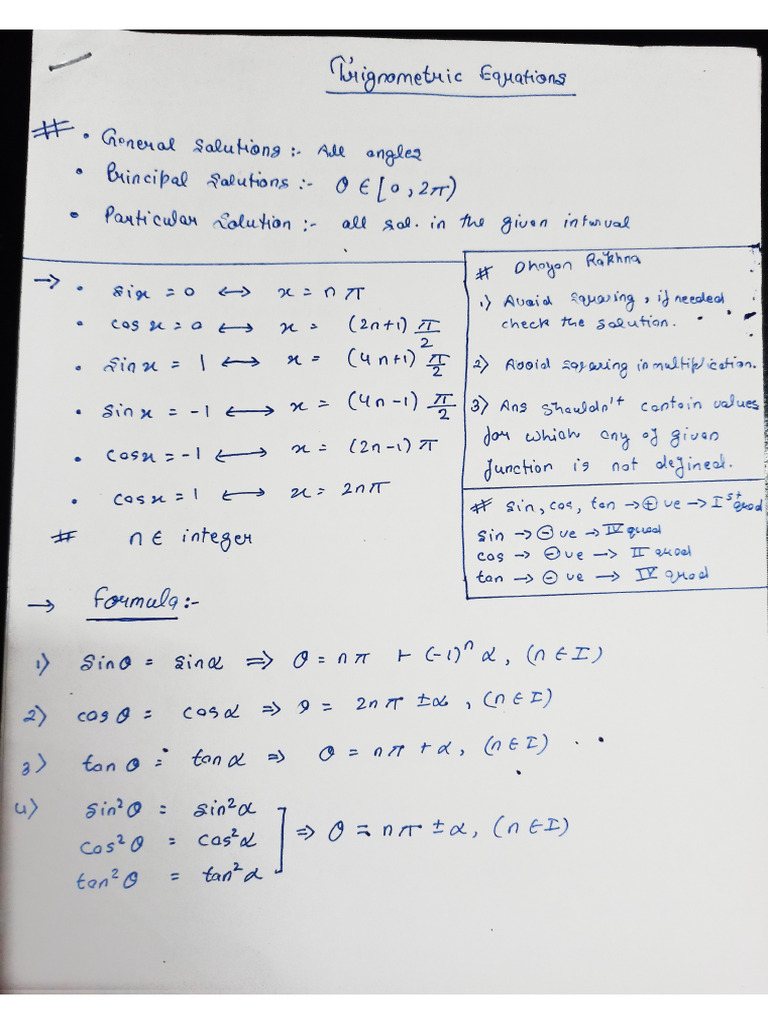 Trignometric Equations
# • General Solutions :- All angles
• Principal Solutions :- θ ∈ [0, 2π)
• Particular Solution :- all sol. in the given interval
→ • sinx = 0 ⟷ x = nπ
• cosx = 0 ⟷ x = (2n+1) π/2
• sinx = 1 ⟷ x = (4n+1) π/2
• sinx = -1 ⟷ x = (4n-1) π/2
• cosx = -1 ⟷ x = (2n-1) π
• cosx = 1 ⟷ x = 2nπ
# n ∈ integer
# Dhayan Rakhna
1) Avoid squaring, if needed
check the solution.
2) Avoid squaring in multiplication.
3) Ans shouldn't contain values
for which any of given
function is not defined.
# sin, cos, tan → ⊕ ve → Ist quad
sin → ⊖ ve → IV quad
cos → ⊖ ve → II quad
tan → ⊖ ve → IV quad
→ Formula :-
1) Sinθ = sinα ⇒ θ = nπ + (-1)ⁿ α, (n ∈ I)
2) cosθ = cosα ⇒ θ = 2nπ ± α, (n ∈ I)
3) tanθ = tanα ⇒ θ = nπ + α, (n ∈ I)
4) sin²θ = sin²α
cos²θ = cos²α ] ⇒ θ = nπ ± α, (n ∈ I)
tan²θ = tan²α